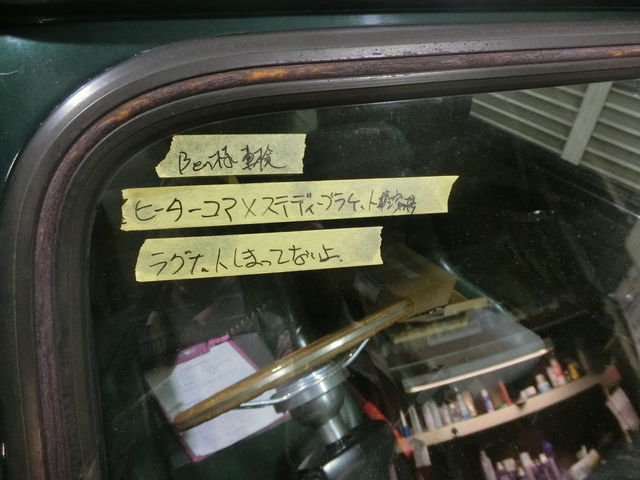 Ben様 車検
ヒーターコマ×ステディーブラケット
ラグナットしまってないよ.